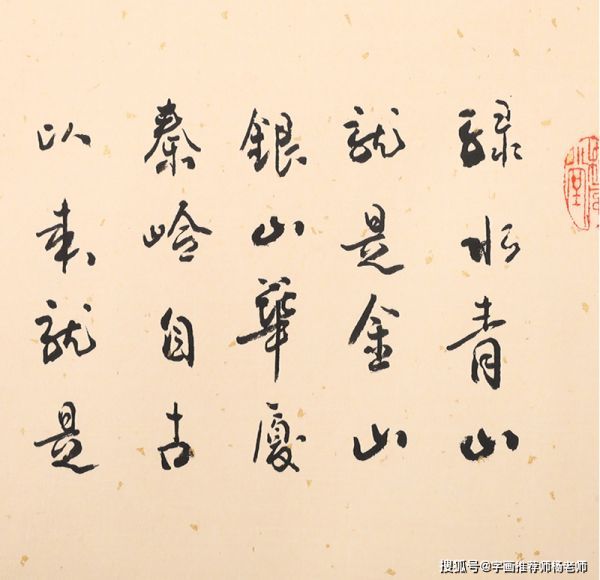 綠水青山
就是金山
銀山華厦
秦岭自古
以来就是
搜狐号@字画推荐师杨老师